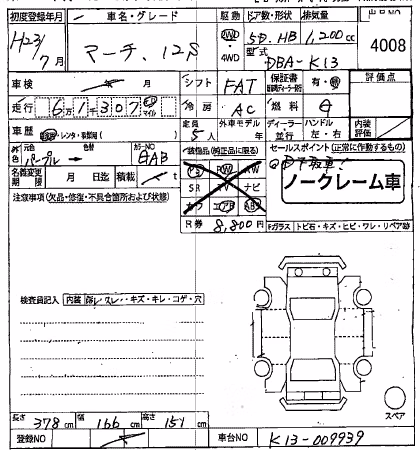 初度登録年月 車名・グレード 駆動 ドア数・形状 排気量 出品NO
H23/7月 マーチ. 12S 2WD ・4WD 5D. HB 1,200cc 4008
型式 DBA-K13
車検 年 月 シフト FAT 保証書 有・無 評価点
走行 61307 km マイル 冷房 AC 燃料 G
車歴 自家・レンタ・事業用( ) 定員 5人 外車モデル年 年 ディーラー・並行 ハンドル 左・右 内装評価
色 元色 パープル→ 色替 カラーNO GAB 装備品(純正品に限る) セールスポイント(正常に作動するもの)
名義変更期限 月 日迄 積載 t PS PW AW 下取車!
SR TV ナビ ノークレーム車
注意事項(欠品・修復・不具合箇所および状態) カワ エアB ABS
R券 8,800円 Fガラス トビ石・キズ・ヒビ・ワレ・リペア跡
検査員記入 内装 スレ・キズ・キレ・コゲ・穴
スペア
長さ 378cm 幅 166cm 高さ 151cm
登録NO 車台NO K13-009939